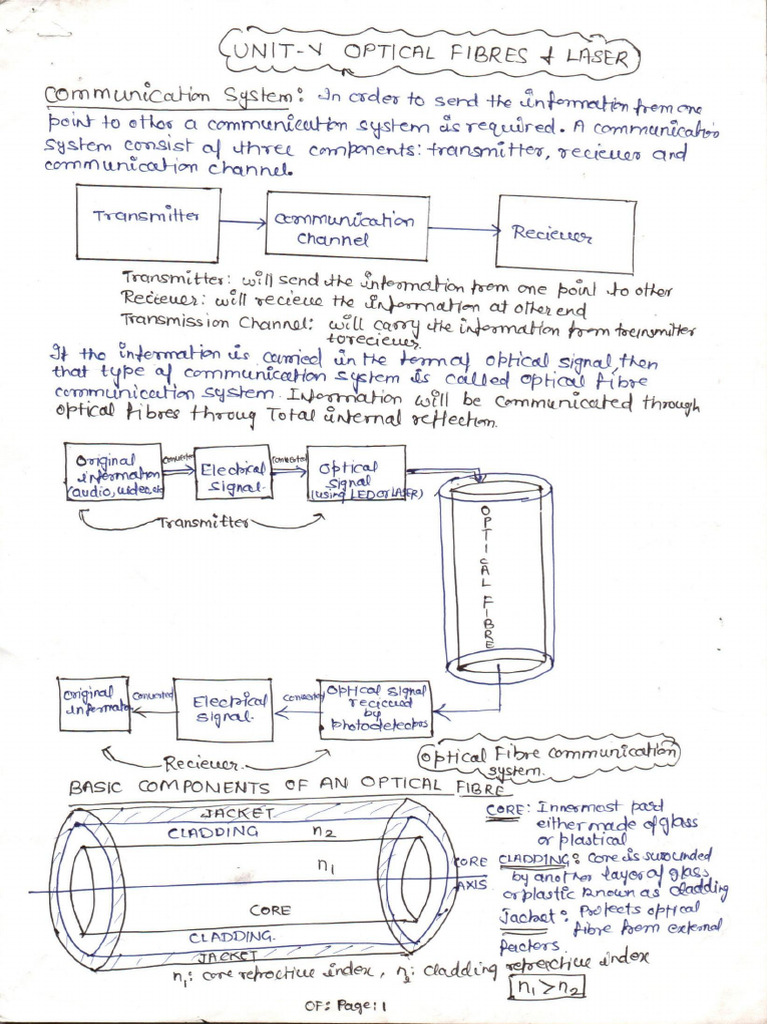 UNIT-V OPTICAL FIBRES & LASER
Communication System: In order to send the information from one
point to other a communication system is required. A communication
system consist of three components: transmitter, reciever and
communication channel.
Transmitter
communication
channel
Reciever
Transmitter: will send the information from one point to other
Reciever: will recieve the information at other end
Transmission Channel: will carry the information from transmitter
to reciever.
If the information is carried in the form of optical signal, then
that type of communication system is called optical fibre
communication system. Information will be communicated through
optical fibres throug Total internal reflection.
Original
information
(audio, video, etc
converted
Electrical
signal.
converted
Optical
signal
(using LED or LASER)
Transmitter
OPTICAL FIBRE
Original
informato
Converted
Electrical
signal.
Converted
Optical signal
recieved
by
photodetectors
Reciever.
Optical Fibre communication
system.
BASIC COMPONENTS OF AN OPTICAL FIBRE
JACKET
CLADDING n2
n1
CORE
AXIS
CORE
CLADDING.
JACKET
CORE: Innermost part
either made of glass
or plastical
CLADDING: Core is surounded
by another layer of glass
or plastic known as cladding
Jacket: Protects optical
fibre from external
factors.
n1: core refractive index, n2: cladding refractive index
n1 > n2
OF: Page: 1